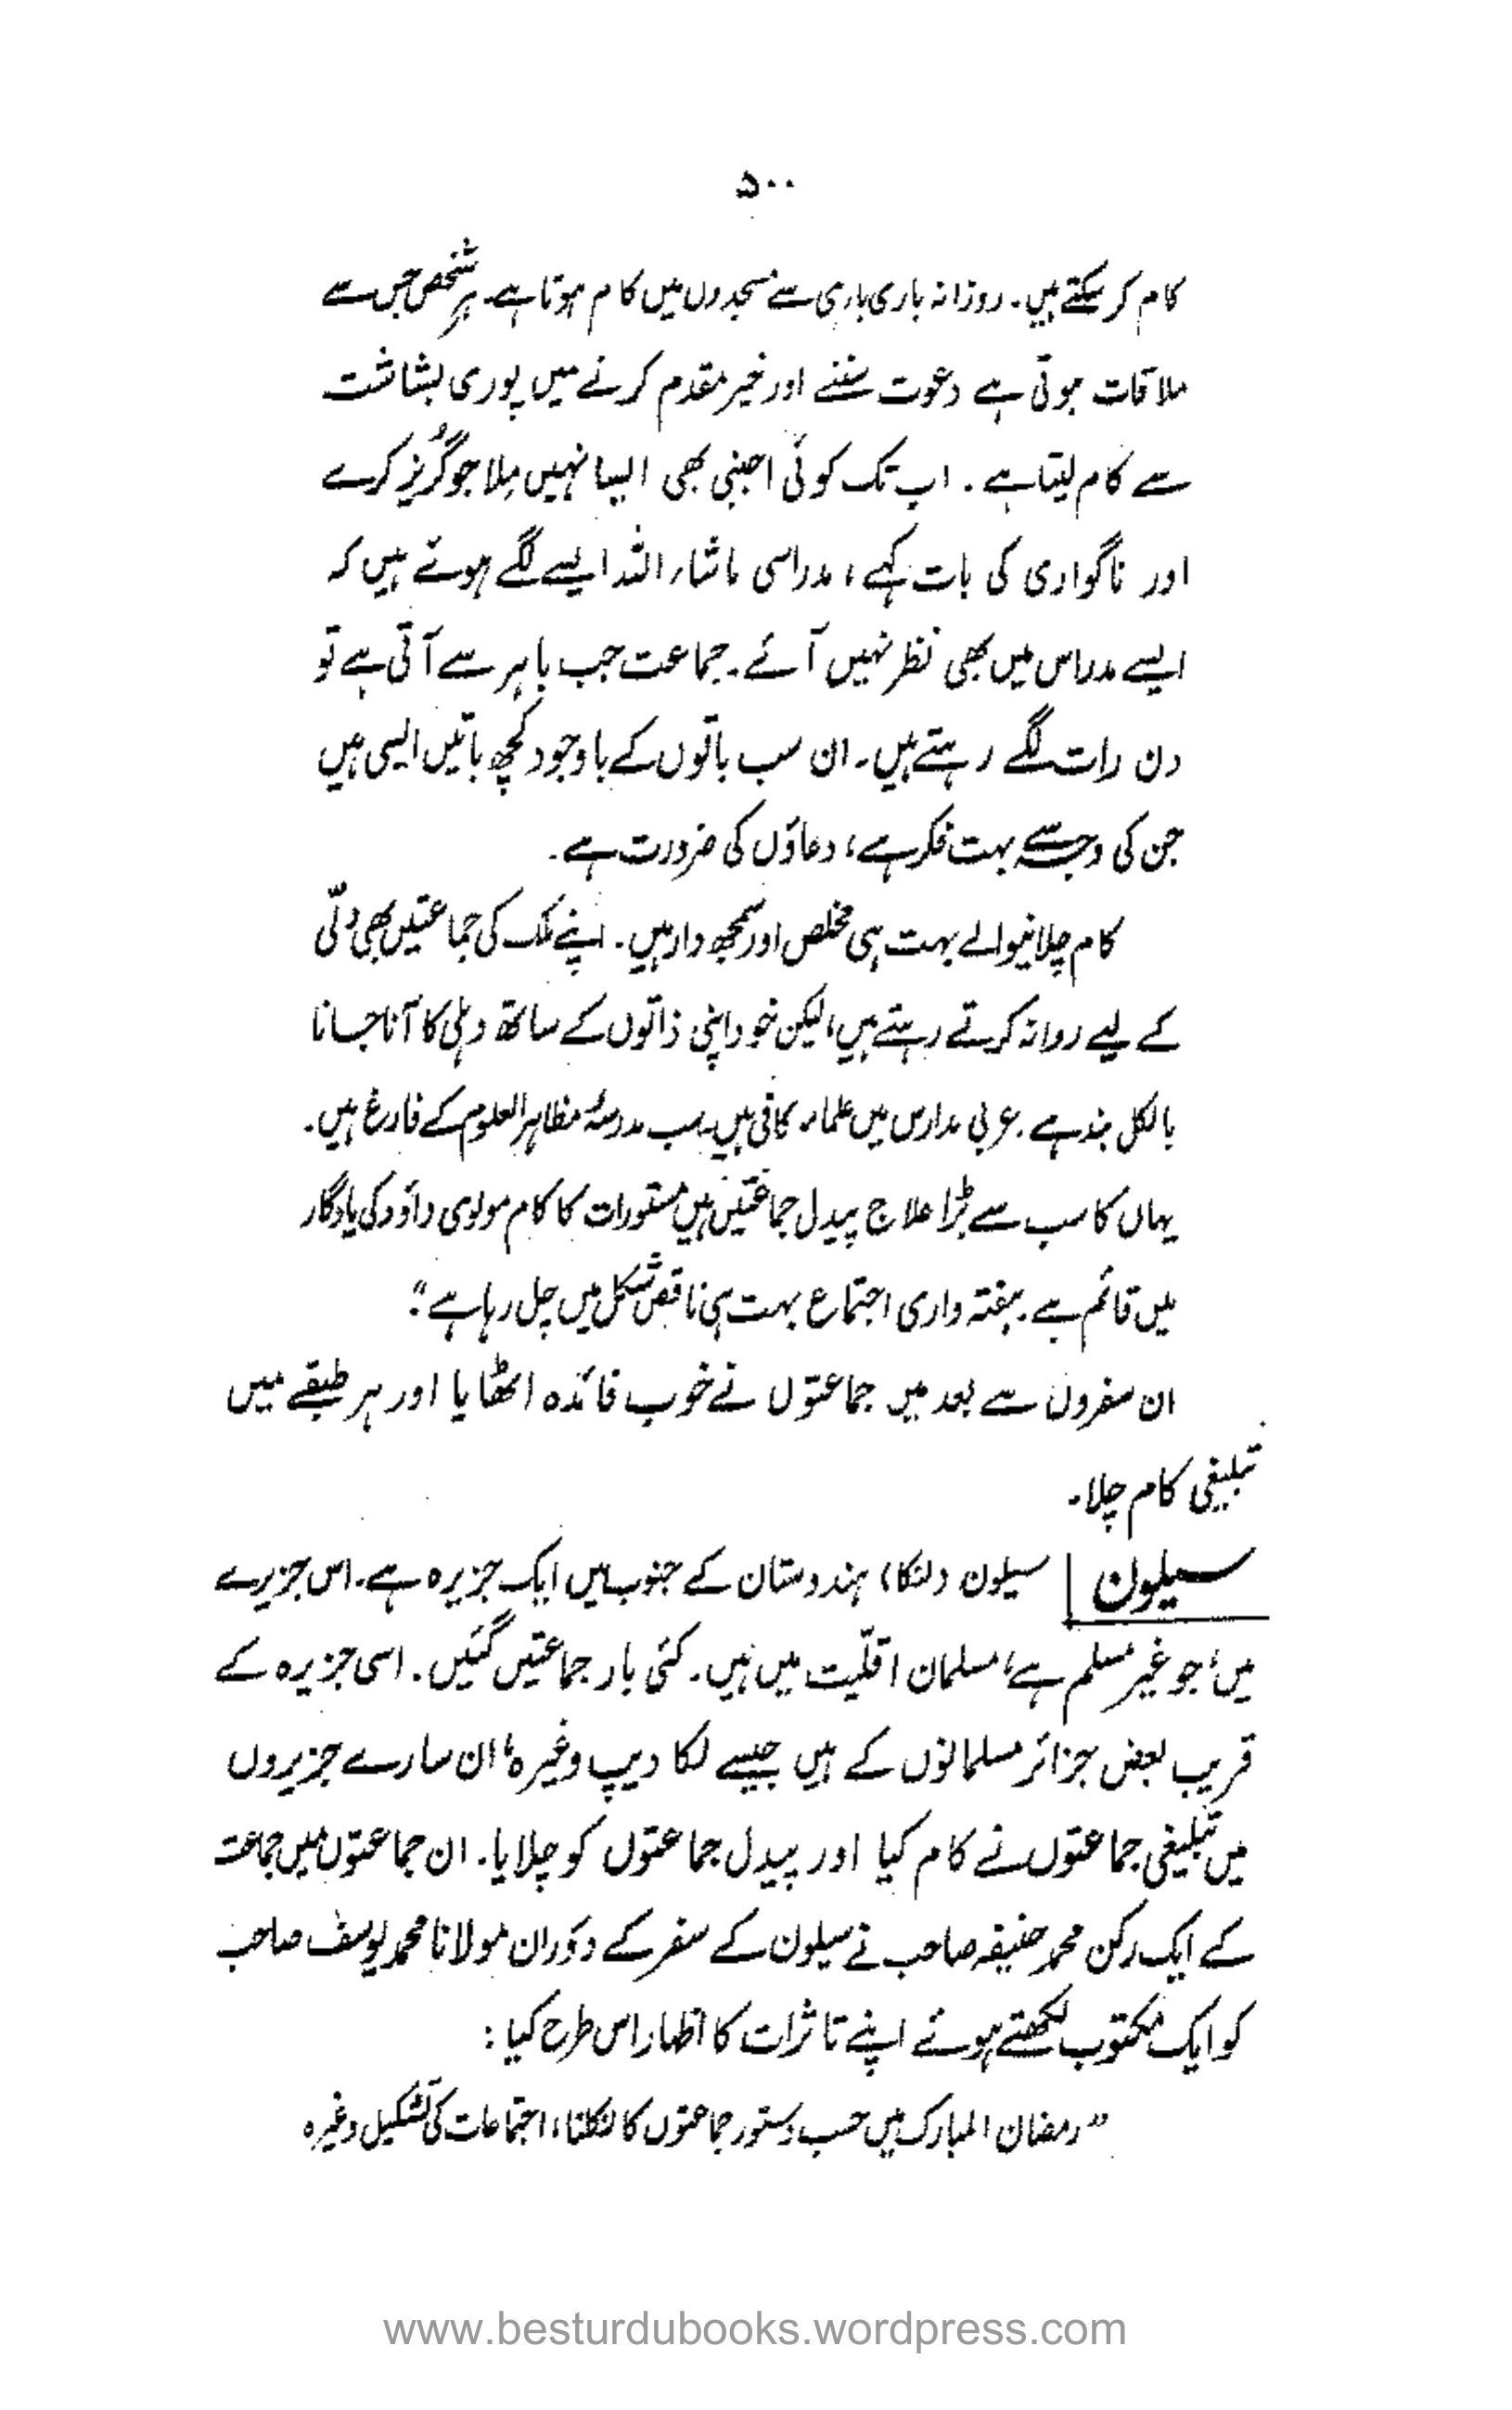 ۵۰۰
کام کر سکتے ہیں۔ روزانہ باری باری سے مسجدوں میں کام ہوتا ہے۔ ہر شخص جس سے
ملاقات ہوتی ہے دعوت سننے اور خیر مقدم کرنے میں پوری بشاشت
سے کام لیتا ہے۔ اب تک کوئی اجنبی بھی ایسا نہیں مِلا جو گُریز کرے
اور ناگواری کی بات کہے، مدراسی ماشاء اللہ ایسے لگے ہوتے ہیں کہ
ایسے مدراس میں بھی نظر نہیں آئے۔ جماعت جب باہر سے آتی ہے تو
دن رات لگے رہتے ہیں۔ ان سب باتوں کے باوجود کچھ باتیں ایسی ہیں
جن کی وجہ سے بہت فکر ہے، دعاؤں کی ضرورت ہے۔
کام چلانیوالے بہت ہی مخلص اور سمجھ دار ہیں۔ اپنے ملک کی جماعتیں بھی دلّی
کے لیے روانہ کرتے رہتے ہیں، لیکن خود اپنی ذاتوں کے ساتھ دہلی کا آنا جانا
بالکل بند ہے۔ عربی مدارس میں علماء کافی ہیں۔ سب مدرسۂ مظاہر العلوم کے فارغ ہیں۔
یہاں کا سب سے بڑا علاج پیدل جماعتیں ہیں مستورات کا کام مولوی داؤد کی یادگار
میں قائم ہے۔ ہفتہ واری اجتماع بہت ہی ناقص شکل میں چل رہا ہے"۔
ان سفروں سے بعد میں جماعتوں نے خوب فائدہ اٹھایا اور ہر طبقے میں
تبلیغی کام چلا۔
سیلون | سیلون (لنکا) ہندوستان کے جنوب میں ایک جزیرہ ہے۔ اس جزیرے
میں، جو غیر مسلم ہے، مسلمان اقلّیت میں ہیں۔ کئی بار جماعتیں گئیں۔ اسی جزیرہ کے
قریب بعض جزائر مسلمانوں کے ہیں جیسے لکا دیپ وغیرہ، ان سارے جزیروں
میں تبلیغی جماعتوں نے کام کیا اور پیدل جماعتوں کو چلایا۔ ان جماعتوں میں جماعت
کے ایک رکن محمد حنیفہ صاحب نے سیلون کے سفر کے دَوران مولانا محمد یوسف صاحب
کو ایک مکتوب لکھتے ہوئے اپنے تاثرات کا اظہار اس طرح کیا:
"رمضان المبارک میں حسب دستور جماعتوں کا نکلنا، اجتماعات کی تشکیل وغیرہ
www.besturdubooks.wordpress.com